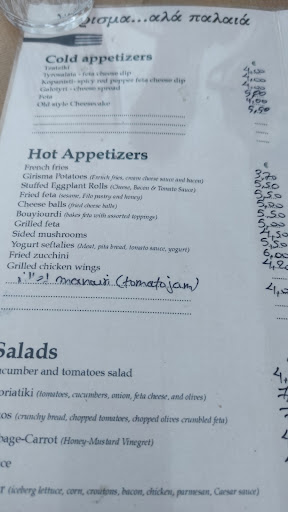 αλά παλαιά
Cold appetizers
€
Tzatziki 4,00
Tyrosalata - feta cheese dip
Kopanisti - spicy red pepper feta cheese dip
Galotyri - cheese spread
Feta
Old style Cheesecake 5,50
Hot Appetizers
€
French fries 3,70
Girisma Potatoes (French fries, cream cheese sauce and bacon) 5,50
Stuffed Eggplant Rolls (Cheese, Bacon & Tomato Sauce) 5,50
Fried feta (sesame, Filo pastry and honey) 5,50
Cheese balls (fried cheese balls) 5,00
Bouyiourdi (bakes feta with assorted toppings) 5,50
Grilled feta 5,00
Sided mushrooms 4,50
Yogurt seftalies (Meat, pita bread, tomato sauce, yogurt) 5,50
Fried zucchini 6,00
Grilled chicken wings 4,20
(tomato jam)
Salads
cucumber and tomatoes salad
oriatiki (tomatoes, cucumbers, onion, feta cheese, and olives)
os (crunchy bread, chopped tomatoes, chopped olives crumbled feta)
bage-Carrot (Honey-Mustard Vinegret)
ce
r (iceberg lettuce, corn, croutons, bacon, chicken, parmesan, Caesar sauce)